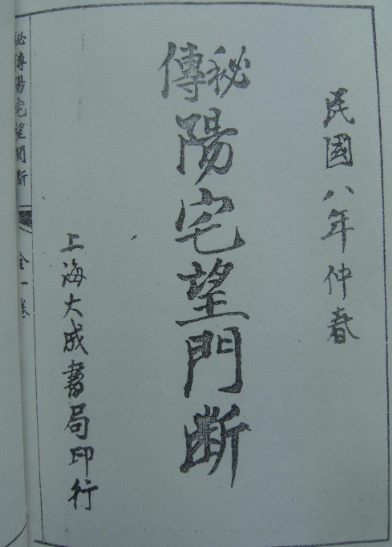 民國八年仲春
秘傳
陽宅望門斷
上海大成書局印行
秘傳陽宅望門斷
全一卷